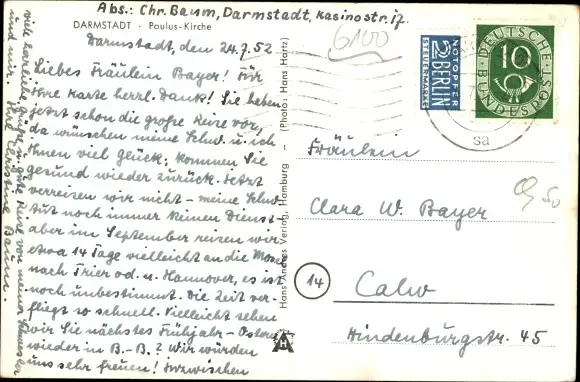 Abs.: Chr. Baum, Darmstadt, Kasinostr. 17.
DARMSTADT · Paulus-Kirche
Darmstadt, den 24.7.52
Liebes Fräulein Bayer! Für
Ihre Karte herzl. Dank! Sie haben
jetzt schon die große Reise vor,
da wünschen meine Schw. u. ich
Ihnen viel Glück, kommen Sie
gesund wieder zurück. Jetzt
verreisen wir nicht - meine Schw.
tut noch immer ihren Dienst -
aber im September reisen wir
etwa 14 Tage vielleicht an die Mosel
nach Trier od. n. Hannover, es ist
noch unbestimmt. Die Zeit ver-
fliegt so schnell. Vielleicht sehen
wir Sie nächstes Frühjahr - Ostern
wieder in B.-B.? Wir würden
uns sehr freuen! Inzwischen
viele herzliche Grüße u. gute Reise von meiner Schwester
und mir. Ihre Christine Baum.
Hans Andres Verlag, Hamburg - (Photo: Hans Hartz)
6100
NOTOPFER
2 BERLIN
STEUERMARKE
DEUTSCHE
BUNDESPOST
10
sa
Fräulein
Clara W. Bayer
14
Calw
Hindenburgstr. 45